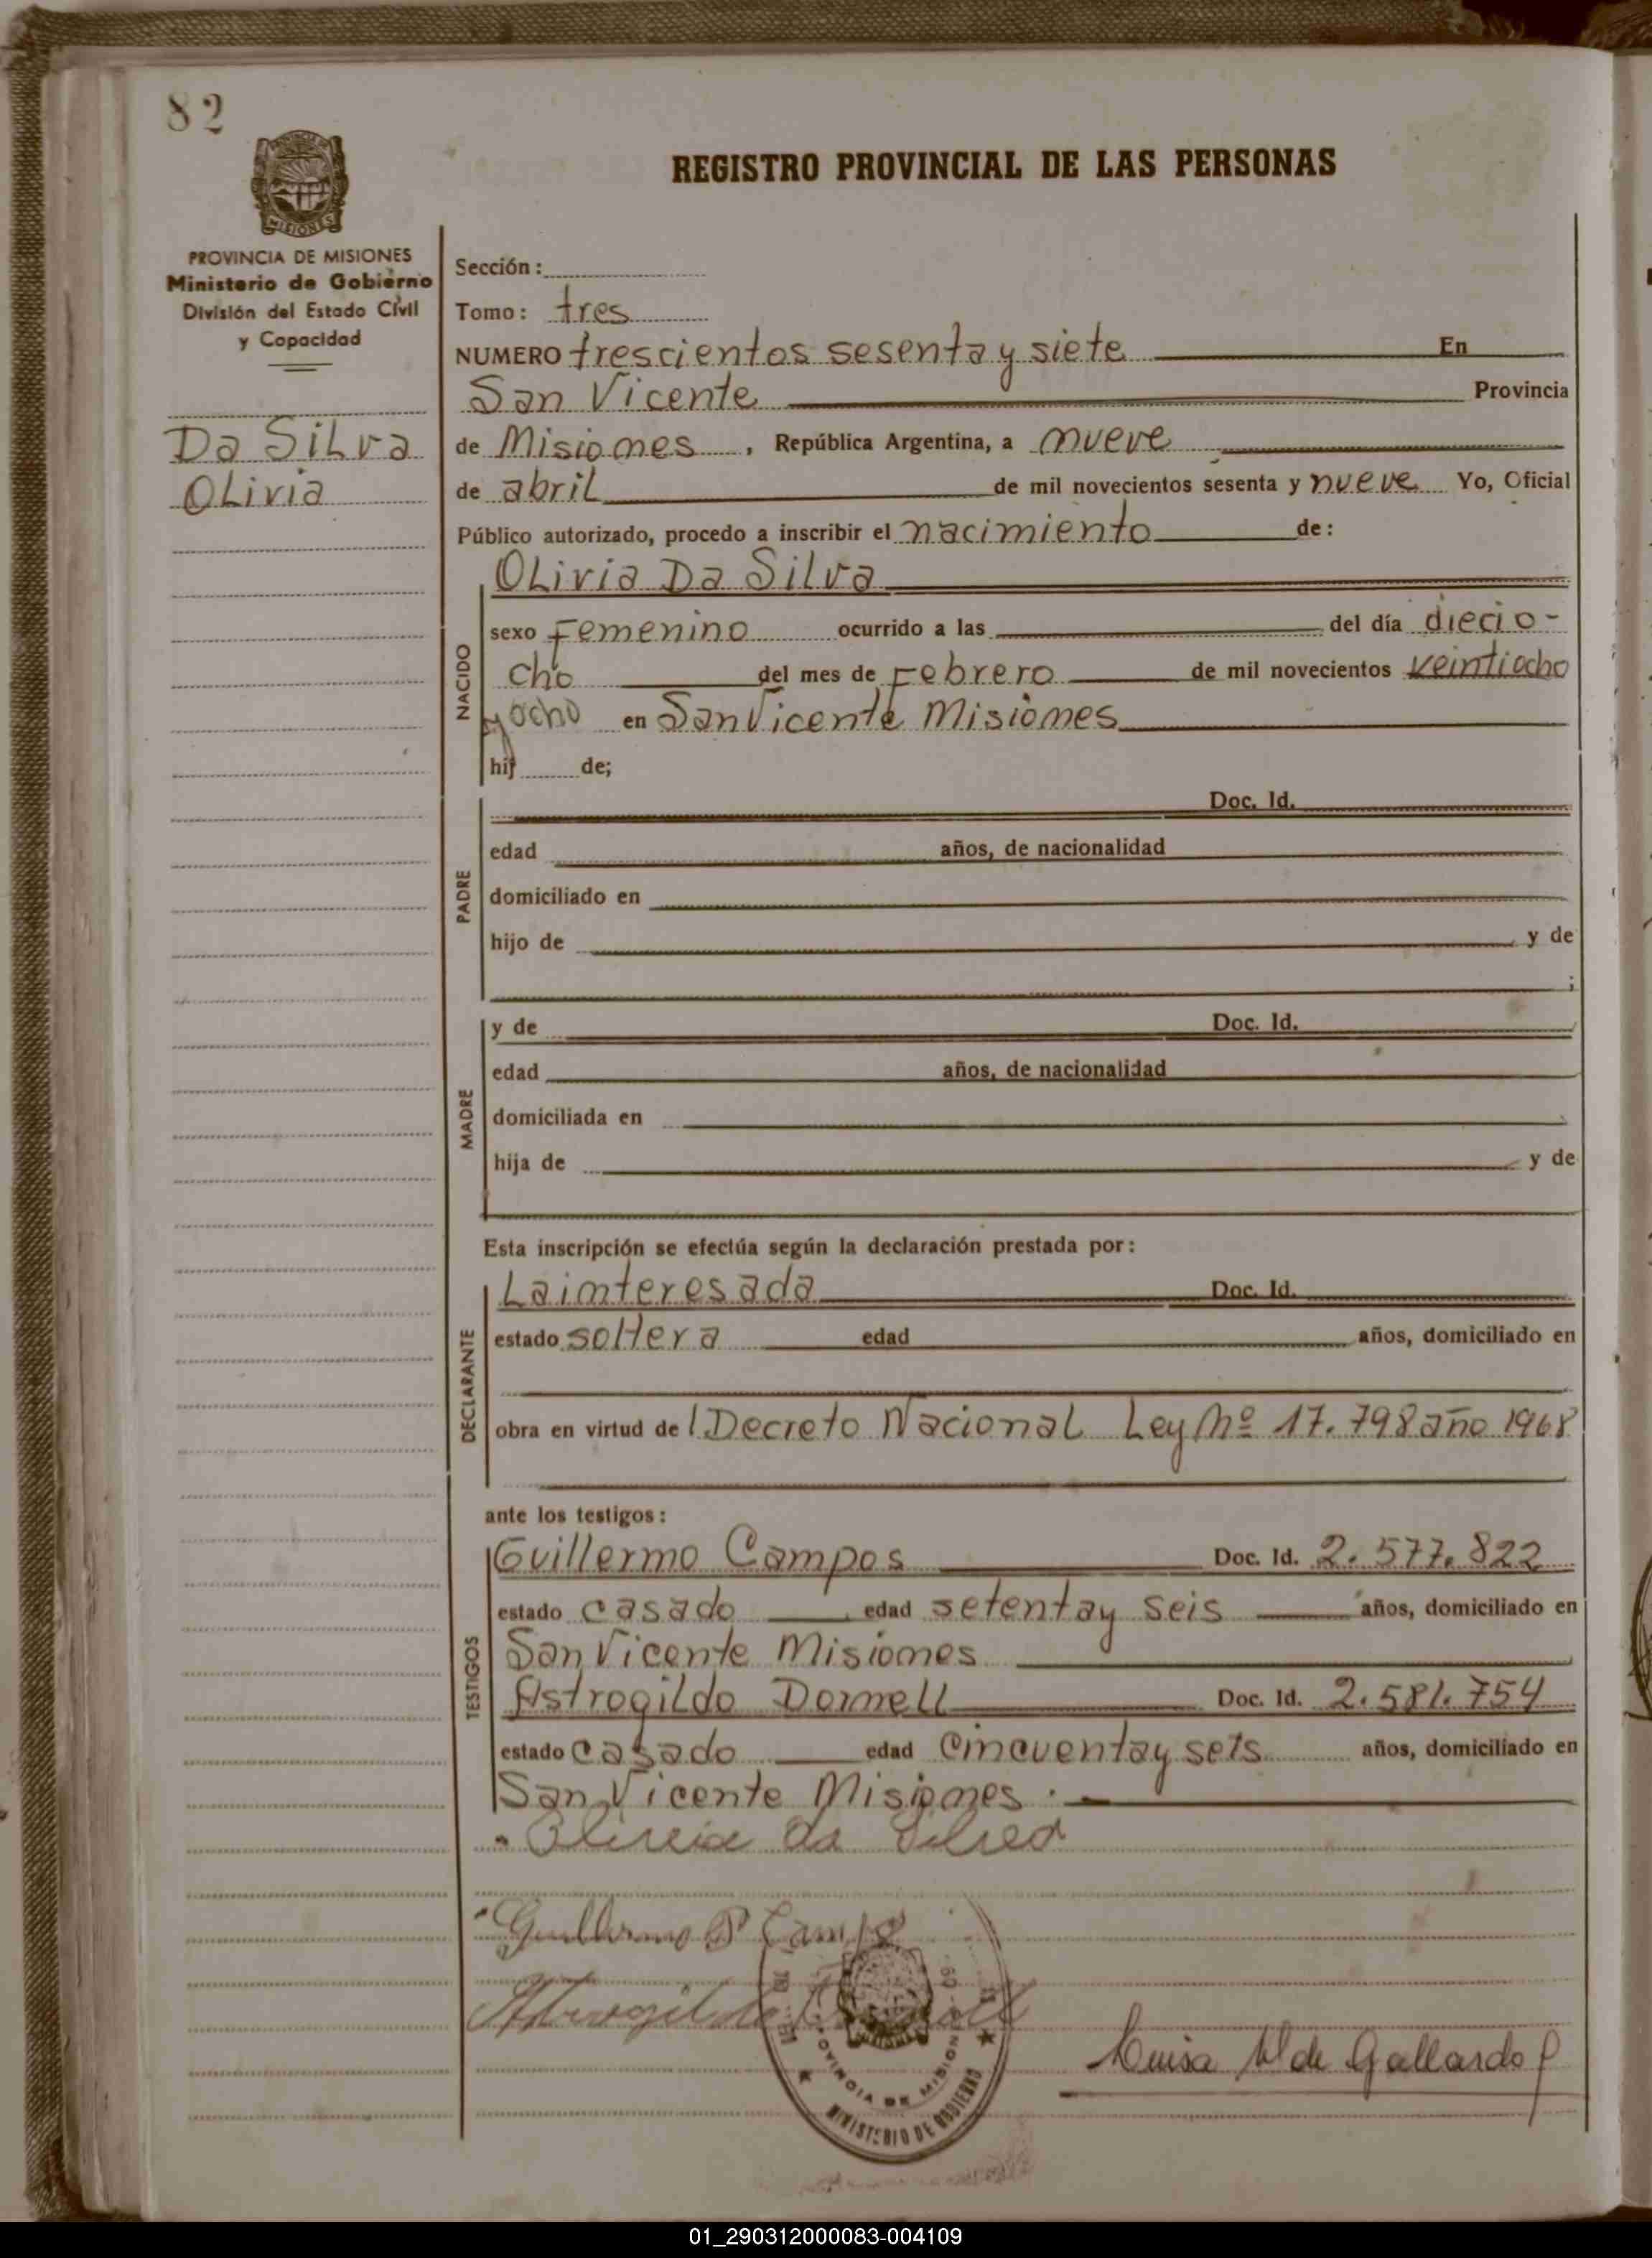 82
REGISTRO PROVINCIAL DE LAS PERSONAS
MISIONES
PROVINCIA DE MISIONES
Ministerio de Gobierno
División del Estado Civil
y Capacidad
Da Silva
Olivia
Sección:
Tomo: tres
NUMERO trescientos sesenta y siete En
San Vicente Provincia
de Misiones, República Argentina, a nueve
de abril de mil novecientos sesenta y nueve Yo, Oficial
Público autorizado, procedo a inscribir el nacimiento de:
NACIDO
Olivia Da Silva
sexo Femenino ocurrido a las del día diecio-
cho del mes de Febrero de mil novecientos veintiocho
y ocho en San Vicente Misiones
hij de;
PADRE
Doc. Id.
edad años, de nacionalidad
domiciliado en
hijo de y de
;
MADRE
y de Doc. Id.
edad años, de nacionalidad
domiciliada en
hija de y de
Esta inscripción se efectúa según la declaración prestada por:
DECLARANTE
La interesada Doc. Id.
estado soltera edad años, domiciliado en
obra en virtud de l Decreto Nacional Ley Nº 17.798 año 1968
ante los testigos:
TESTIGOS
Guillermo Campos Doc. Id. 2.577.822
estado casado edad setenta y seis años, domiciliado en
San Vicente Misiones
Astrogildo Dornell Doc. Id. 2.581.754
estado casado edad cincuenta y seis años, domiciliado en
San Vicente Misiones.
Olivia da Silva
Guillermo Campos
Astrogildo
PROVINCIA DE MISIONES
MINISTERIO DE GOBIERNO
Luisa de Gallardo
01_290312000083-004109